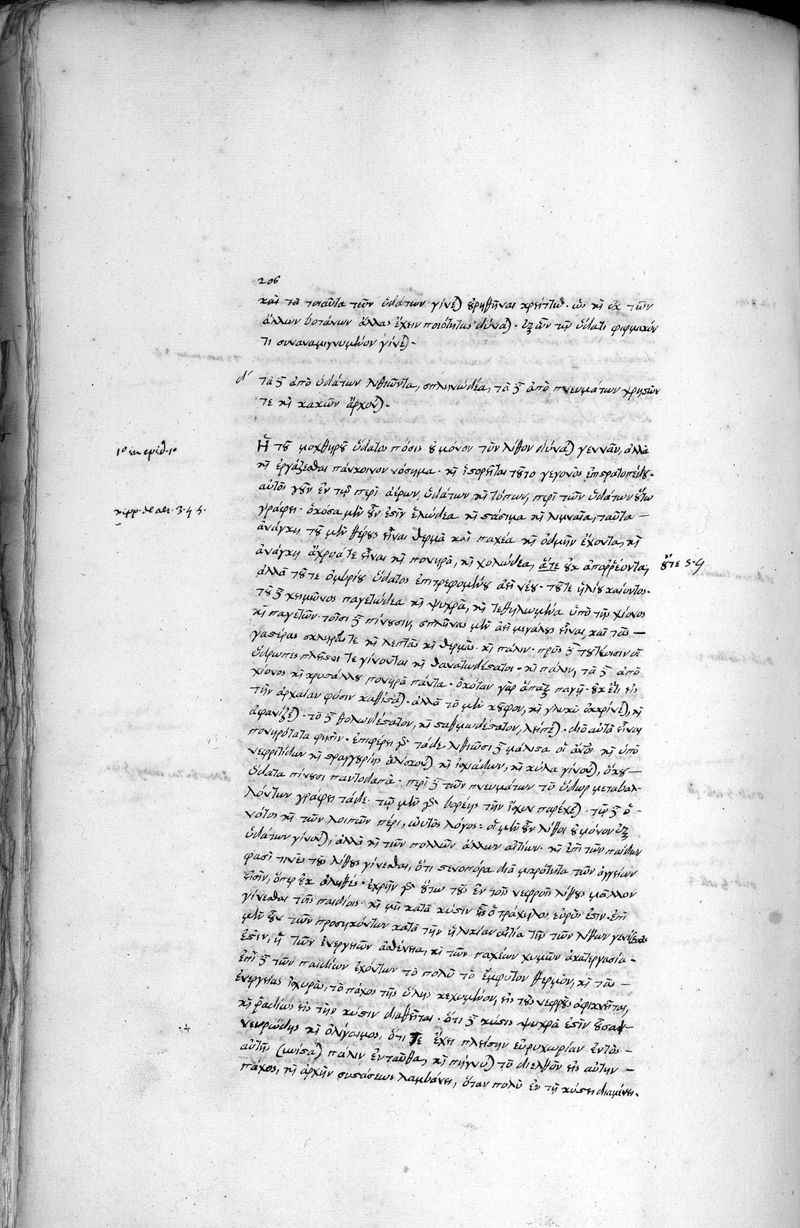 206
καὶ τὰ τοιαῦτα τῶν ὑδάτων γίνε) ὀρηθῆναι ὡς κὴ ἐκ τῶν
ἄλλων βοτάνων ἄλλας ἔχειν ποιότητας δύνα). ἐξ ὧν τῷ ὕδατι
τι συναναμιγνυμένον γίνε).
δ' τὰ δὲ ἀπὸ ὑδάτων λιθιῶντα, σπληνώδεα, τὰ δὲ ἀπὸ πνευμάτων χρηστῶν
τε κὴ κακῶν ἄρχον).
1º in epid. 1º
Ἡ τοῦ μοχθηροῦ ὕδατος πόσις οὐ μόνον τὸν λίθον δύνα) γεννᾶν, ἀλλὰ
κὴ ἐργάζεσθαι πάγκοινον νόσημα. κὴ ἱστορεῖται τοῦτο γεγονὸς
αὐτὸς γοῦν ἐν τῷ περὶ ἀέρων, ὑδάτων κὴ τόπων, περὶ τῶν ὑδάτων οὕτω
hipp. de aer. 3.4 5.
γράφει. ὁκόσα μὲν οὖν ἐστὶν ἑλώδεα κὴ στάσιμα κὴ λιμναῖα, ταῦτα
ἀνάγκη τοῦ μὲν θέρους εἶναι θερμὰ καὶ παχέα κὴ ὀδμὴν ἔχοντα, κὴ
ἀνάγκη ἄχροά τε εἶναι κὴ πονηρὰ, κὴ χολώδεα, ἅτε οὐκ ἀπορρέοντα,
οὔτε 5.9
ἀλλὰ τοῦ τε ὀμβρίου ὕδατος ἐπιτρεφομένου ἀεὶ νέου. τοῦ τε ἡλίου καίοντος.
τοῦ δὲ χειμῶνος παγετώδεα κὴ ψυχρὰ, κὴ τεθολωμένα ὑπὸ τῆς χιόνος
κὴ παγετῶν. τοῖσι δὲ πίνουσιν, σπλῆνας μὲν ἀεὶ μεγάλους εἶναι, καὶ τὰς
γαστέρας σκληράς τε κὴ λεπτὰς κὴ θερμάς. κὴ πάλιν. πρὸς δὲ τούτοισιν οἱ
ὕδρωπες πλεῖστοί τε γίνονται κὴ θανατωδέστατοι. κὴ πάλιν, τὰ δὲ ἀπὸ
χιόνος κὴ κρυστάλλου πονηρὰ πάντα. ὁκόταν γὰρ ἅπαξ παγῇ. οὐκ ἔτι εἰς
τὴν ἀρχαίαν φύσιν καθίστα). ἀλλὰ τὸ μὲν κοῦφον, κὴ γλυκὺ ἐκκρίνε), κὴ
ἀφανίζε). τὸ δὲ θολωδέστατον, κὴ σταθμωδέστατον, λείπε). διὸ αὐτὰ εἶναι
πονηρότατα φησίν. ἐπιφέρει δὲ τάδε. λιθιῶσι δὲ μάλιστα οἱ ἄνθρωποι κὴ ὑπὸ
νεφριτίδων κὴ στραγγουρίης ἁλίσκον) κὴ ἰσχιάδων, κὴ κῆλαι γίνον), ὅκου
ὕδατα πίνουσι παντοδαπά. περὶ δὲ τῶν πνευμάτων τὸ ὕδωρ μεταβαλ
λόντων γράφει τάδε. τῷ μὲν γὰρ βορέης τὴν ἰσχὺν παρέχε). τῷ δὲ ὁ
νότος κὴ τῶν λοιπῶν πέρι, ωὑτὸς λόγος. οἱ μὲν οὖν λίθοι οὐ μόνον ἐξ
ὑδάτων γίνον), ἀλλὰ κὴ τῶν πολλῶν ἄλλων αἰτίων. κὴ ἐπὶ τῶν παίδων
φασί τινες τοὺς λίθους γίνεσθαι, ὅτι στενοπόρα διὰ μικρότητα τῶν ἀγγείων
ἐστὶν, ὅπερ οὐκ ἀληθές. ἐχρῆν γὰρ οὕτω τοὺς ἐν τοῖς νεφροῖς λίθους μᾶλλον
γίνεσθαι τοῖς παιδίοις. κὴ μὴ κατὰ κύστιν ἧς ὁ τράχηλος εὐρύς ἐστιν. ἐπὶ
μὲν οὖν τῶν προσηκόντων κατὰ τὴν ἡλικίαν αἰτία τῆς τῶν λίθων γενέσεως
ἐστὶν, ἡ τῶν ἐνεργειῶν ἀσθένεια, κὴ τῶν παχέων χυμῶν ἀκατεργασία.
ἐπὶ δὲ τῶν παιδίων ἐχόντων τὸ πολὺ τὸ ἔμφυτον θερμὸν, κὴ τὰς
ἐνεργείας ἰσχυρὰς, τὸ πάχος τῆς ὕλης κεχυμένον, εἰς τοὺς νεφροὺς ἀφικνεῖται,
κὴ ῥαδίως εἰς τὴν κύστιν διαθεῖται. ὅτι δὲ κύστις ψυχρὰ ἐστὶν οὖσα
νευρώδης κὴ ὀλίγαιμος, ὅτι τε ἔχει πλείστην εὐρυχωρίαν ἐντὸς
αὐτῆς πάλιν ἐνταῦθα, κὴ πήγνυ) τὸ διελθὸν εἰς αὐτὴν
πάχος, κὴ ἀρχὴν συστάσεως λαμβάνει, ὅταν πολὺ ἐν τῇ κύστει διαμένει.